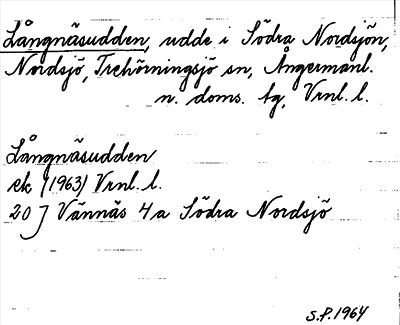 Långnäsudden, udde i Södra Nordsjön,
Nordsjö, Trehörningsjö sn, Ångermanl.
n. doms. tg, Vrnl. l.
Långnäsudden
ek (1963) Vrnl. l.
20 J Vännäs 4a Södra Nordsjö
S.P. 1964